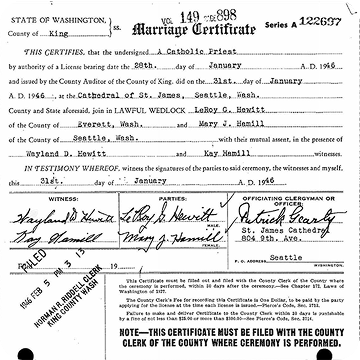 STATE OF WASHINGTON, VOL 149 PAGE 898
County of King ss. Marriage Certificate Series A 122637
THIS CERTIFIES, that the undersigned A Catholic Priest
by authority of a License bearing date the 28th. day of January A. D. 1946
and issued by the County Auditor of the County of King, did on the 31st. day of January
A. D. 1946, at the Cathedral of St. James, Seattle, Wash.
County and State aforesaid, join in LAWFUL WEDLOCK LeRoy G. Hewitt
of the County of Everett, Wash. and Mary J. Hamill
of the County of Seattle, Wash. with their mutual assent, in the presence of
Wayland D. Hewitt and Kay Hamill witnesses.
IN TESTIMONY WHEREOF, witness the signatures of the parties to said ceremony, the witnesses and myself,
this 31st. day of January A. D. 1946
WITNESS: PARTIES: OFFICIATING CLERGYMAN OR OFFICER:
Wayland D Hewitt LeRoy G. Hewitt Patrick Gearty
MALE. St. James Cathedral
Kay Hamill Mary J. Hamill 804 9th. Ave.
FEMALE.
P. O. ADDRESS.
Seattle
WASHINGTON
FILED
1946 FEB 5 PM 3 13
NORMAN R. RIDDELL CLERK
KING COUNTY WASH
19
This Certificate must be filled out and filed with the County Clerk of the County where
the ceremony is performed, within 30 days after the ceremony.—See Chapter 172, Laws of
Washington of 1927.
The County Clerk's Fee for recording this Certificate is One Dollar, to be paid by the party
applying for the license at the time each license is issued.
Failure to make and deliver Certificate to the County Clerk within 30 days is punishable
by a fine of not less than
NOTE—THIS CERTIFICATE MUST BE FILED WITH THE COUNTY
CLERK OF THE COUNTY WHERE CEREMONY IS PERFORMED.